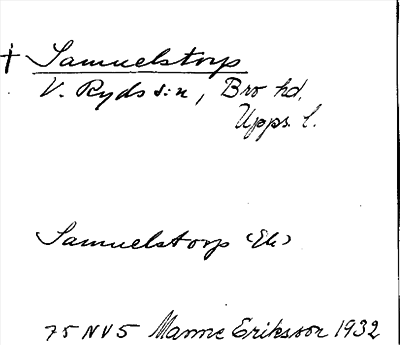 † Samuelstorp
V. Ryds s:n, Bro hd.
Upps. l.
Samuelstorp (Ek)
75 NV 5 Manne Eriksson 1932